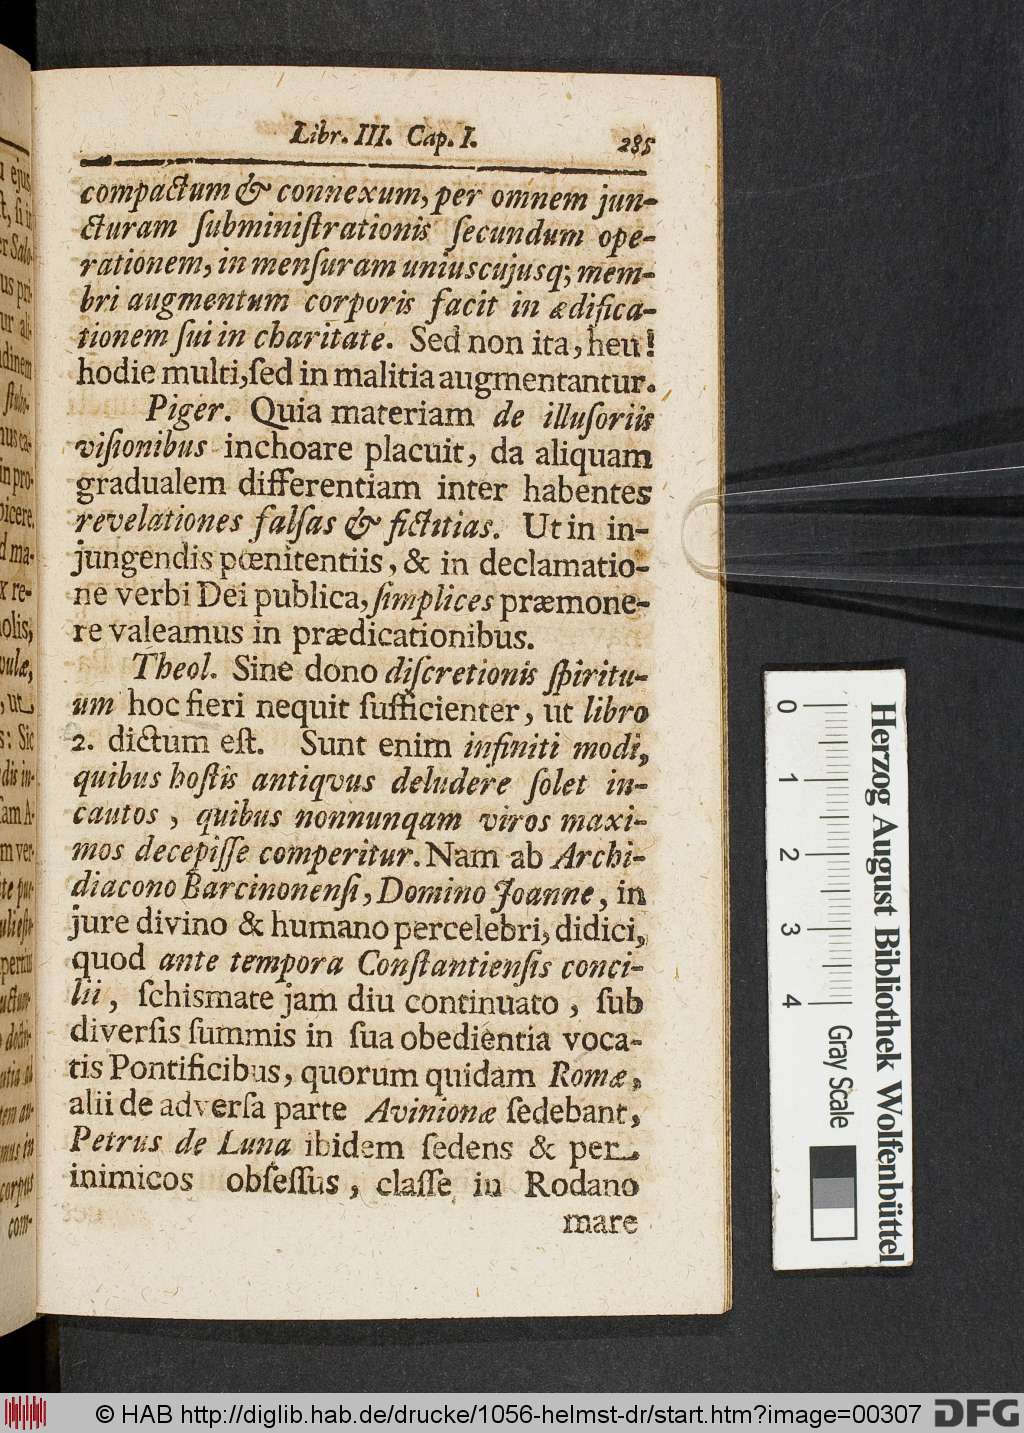 Libr. III. Cap. I. 285
compactum & connexum, per omnem jun-
cturam ſubminiſtrationis ſecundum ope-
rationem, in menſuram uniuscujusq; mem-
bri augmentum corporis facit in ædifica-
tionem ſui in charitate. Sed non ita, heu!
hodie multi, ſed in malitia augmentantur.
Piger. Quia materiam de illuſoriis
viſionibus inchoare placuit, da aliquam
gradualem differentiam inter habentes
revelationes falſas & fictitias. Ut in in-
jungendis pœnitentiis, & in declamatio-
ne verbi Dei publica, ſimplices præmone-
re valeamus in prædicationibus.
Theol. Sine dono diſcretionis ſpiritu-
um hoc fieri nequit ſufficienter, ut libro
2. dictum eſt. Sunt enim infiniti modi,
quibus hoſtis antiqvus deludere ſolet in-
cautos, quibus nonnunqam viros maxi-
mos decepiſſe comperitur. Nam ab Archi-
diacono Barcinonenſi, Domino Joanne, in
jure divino & humano percelebri, didici,
quod ante tempora Conſtantienſis conci-
lii, ſchismate jam diu continuato, ſub
diverſis ſummis in ſua obedientia voca-
tis Pontificibus, quorum quidam Romæ,
alii de adverſa parte Avinionæ ſedebant,
Petrus de Luna ibidem ſedens & per
inimicos obſeſſus, claſſe in Rodano
mare
0 1 2 3 4
Gray Scale
Herzog August Bibliothek Wolfenbüttel
© HAB http://diglib.hab.de/drucke/1056-helmst-dr/start.htm?image=00307
DFG